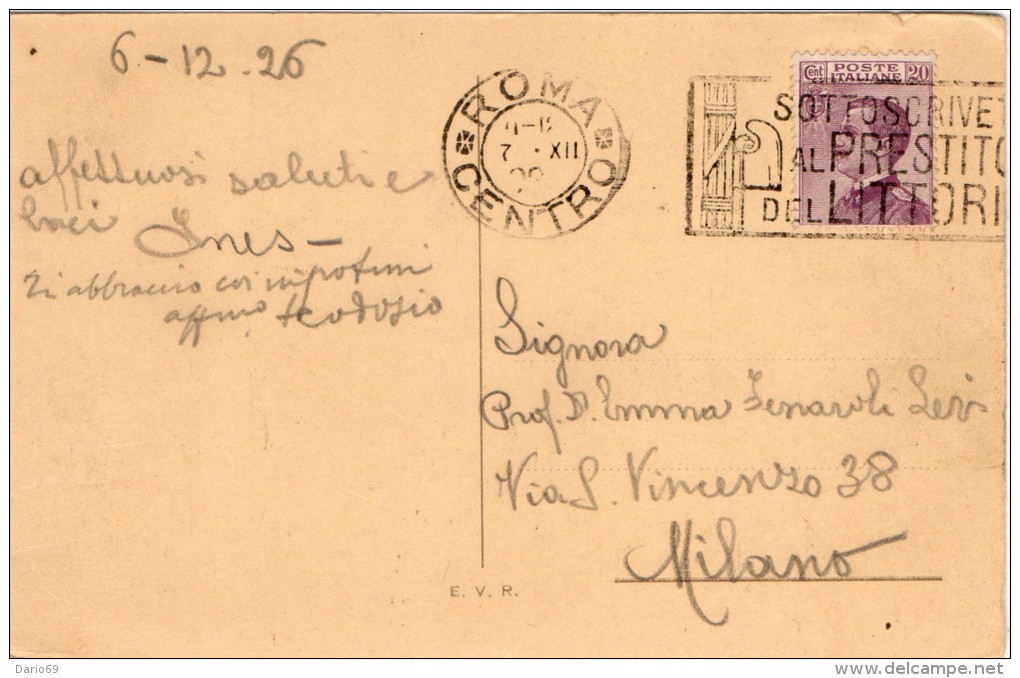 6-12.26
affettuosi saluti e
baci Ines -
Ti abbraccio coi nipotini
affmo Teodosio
ROMA
CENTRO
7 · XII
Cent POSTE 20
ITALIANE
SOTTOSCRIVET
AL PRESTITO
DEL LITTORI
Signora
Prof. D. Emma Fenaroli Levi
Via S. Vincenzo 38
Milano
E. V. R.
Dario69
www.delcampe.net